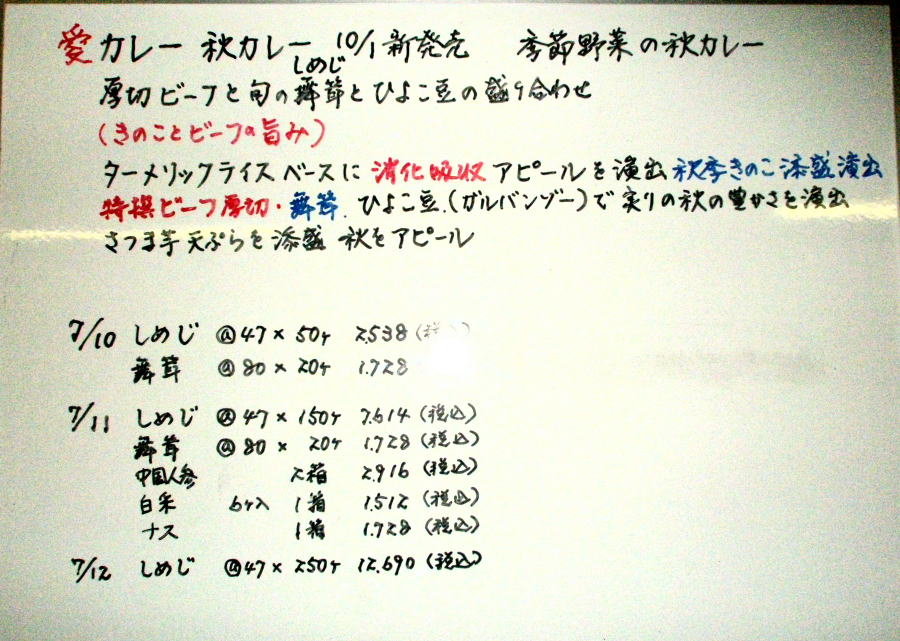 愛カレー 秋カレー 10/1新発売 季節野菜の秋カレー
しめじ
厚切ビーフと旬の舞茸とひよこ豆の盛り合わせ
(きのことビーフの旨み)
ターメリックライスベースに消化吸収アピールを演出 秋季きのこ添盛演出
特撰ビーフ厚切・舞茸.ひよこ豆.(ガルバンゾー)で実りの秋の豊かさを演出
さつま芋天ぷらを添盛 秋をアピール
7/10 しめじ @47×50ケ 2.538(税込)
舞茸 @80×20ケ 1.728
7/11 しめじ @47×150ケ 7.614(税込)
舞茸 @80× 20ケ 1.728(税込)
中国人参 2箱 2.916(税込)
白菜 6ケ入 1箱 1.512(税込)
ナス 1箱 1.728(税込)
7/12 しめじ @47×250ケ 12.690(税込)